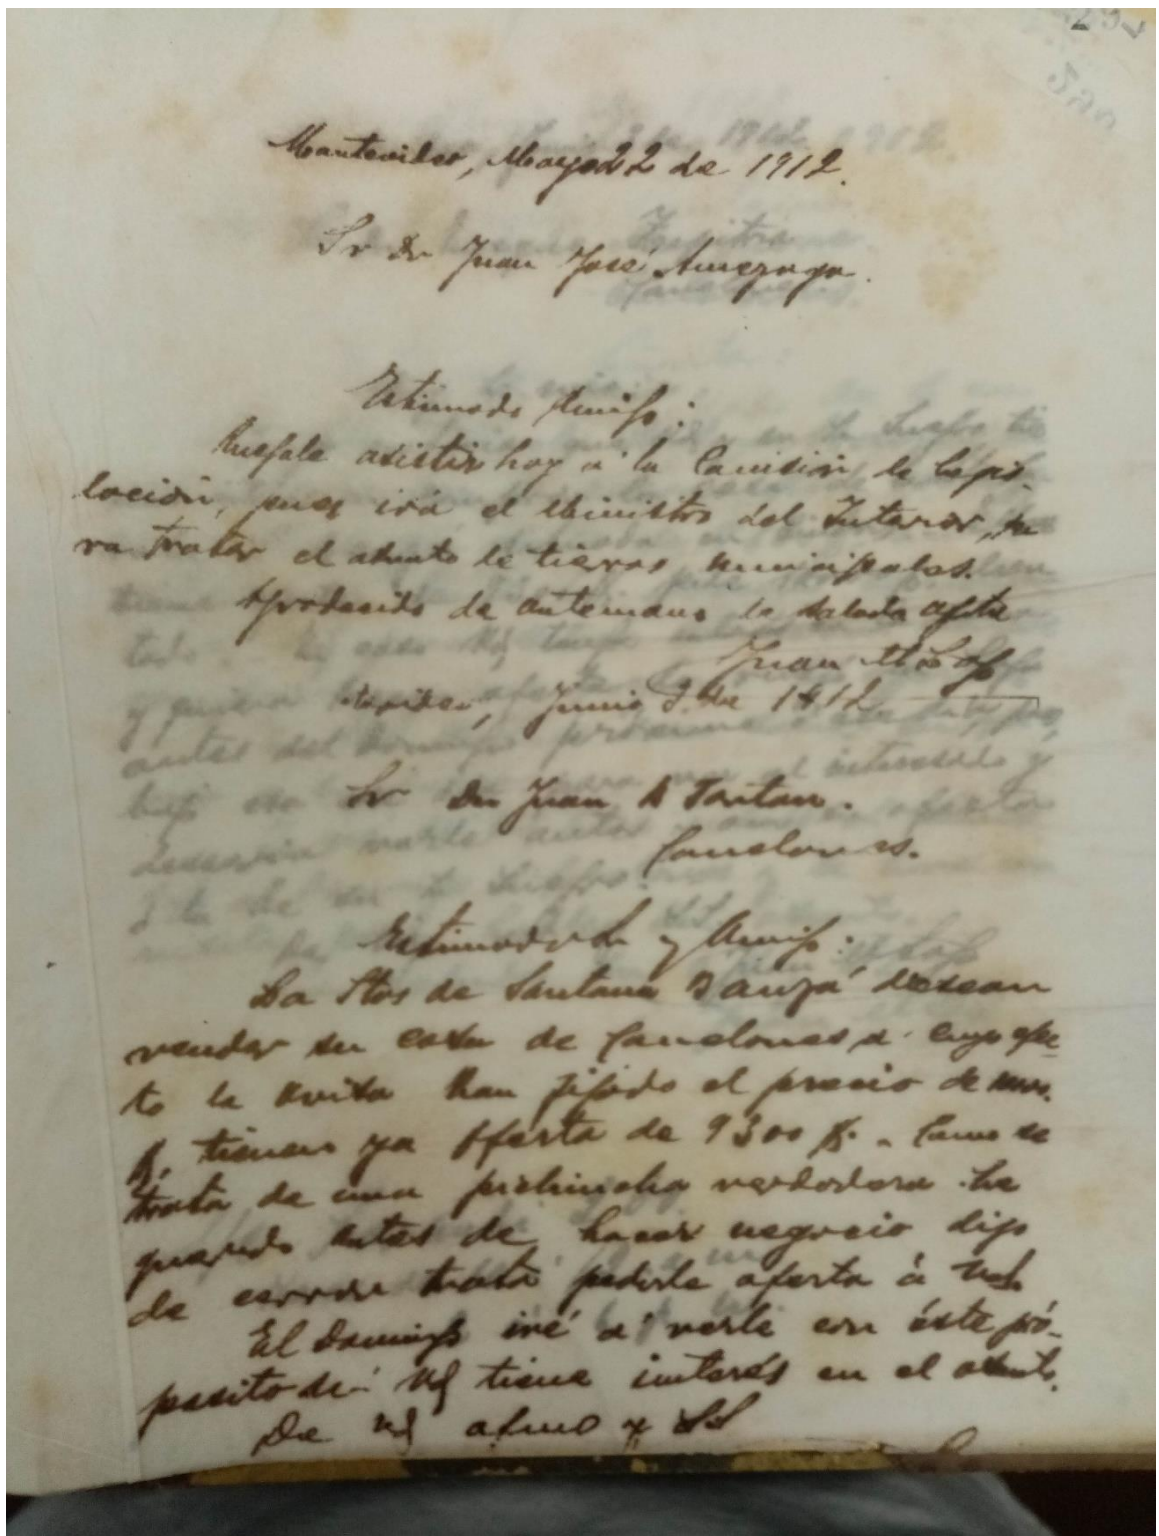 Montevideo, Mayo 22 de 1912.
Sr Dr Juan José Amezaga.
Estimado Amigo:
Ruégole asistir hoy á la Comisión de Legis-
lación, pues irá el Ministro del Interior, pa
ra tratar el asunto de tierras municipales.
Agradecido de antemano lo saluda afte
Juan
Junio de 1912
Sr Dn Juan A Tortan.
Canelones.
Estimado Sr y Amigo:
La Stas de Santana Bauzá desean
vender su casa de Canelones á cuyo efec-
to la han fijado el precio de
tienen ya oferta de 9300 $. Como se
trata de una pichincha verdadera he
querido antes de hacer negocio digo
de cerrar trato pedirle oferta á Vd.
El Domingo iré á verle con éste pró-
posito si Vd tiene interés en el asunto.
De Vd afmo y SS